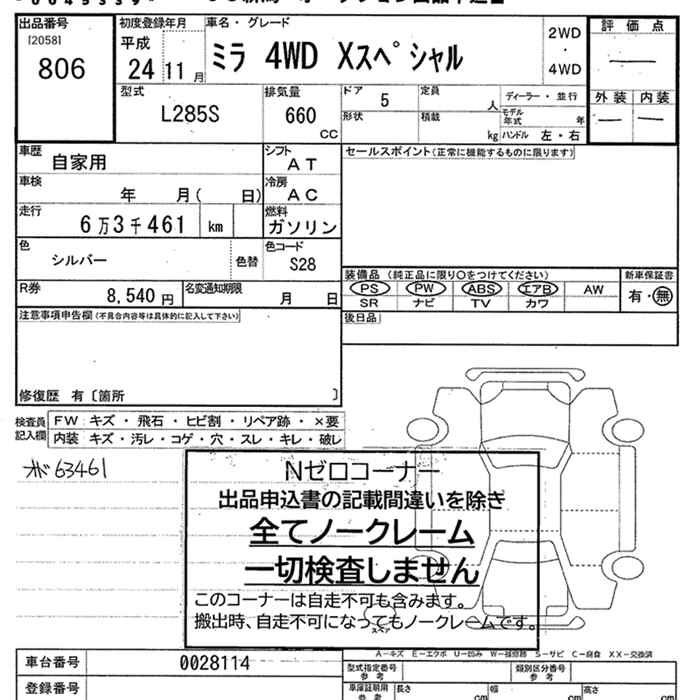 出品番号
[2058]
806
初度登録年月
平成
24 11 月
車名・グレード
ミラ 4WD Xスペシャル
2WD
・
4WD
評価点
―
外装 内装
― ―
型式
L285S
排気量
660
CC
ドア
5
定員
人
ディーラー・並行
形状
積載
kg
モデル年式
年
ハンドル 左・右
車歴
自家用
シフト
AT
セールスポイント(正常に機能するものに限ります)
車検
年 月( 日)
冷房
AC
走行
6万3千461 km
燃料
ガソリン
色
シルバー
色替
色コード
S28
装備品 (純正品に限り〇をつけてください)
新車保証書
PS PW ABS エアB AW
SR ナビ TV カワ
有・無
R券
8,540 円
名変通知期限
月 日
注意事項申告欄(不具合内容等は具体的に記入して下さい)
後日品
修復歴 有〔箇所 〕
検査員記入欄
FW キズ・飛石・ヒビ割・リペア跡・×要
内装 キズ・汚レ・コゲ・穴・スレ・キレ・破レ
63461
Nゼロコーナー
出品申込書の記載間違いを除き
全てノークレーム
一切検査しません
このコーナーは自走不可も含みます。
搬出時、自走不可になってもノークレームです。
スペア
A-キズ E-エクボ U-凹み W-補修跡 S-サビ C-腐食 XX-交換済
車台番号
0028114
型式指定番号
参考
類別区分番号
参考
登録番号
車庫証明用
参考
長さ
cm
幅
cm
高さ
cm